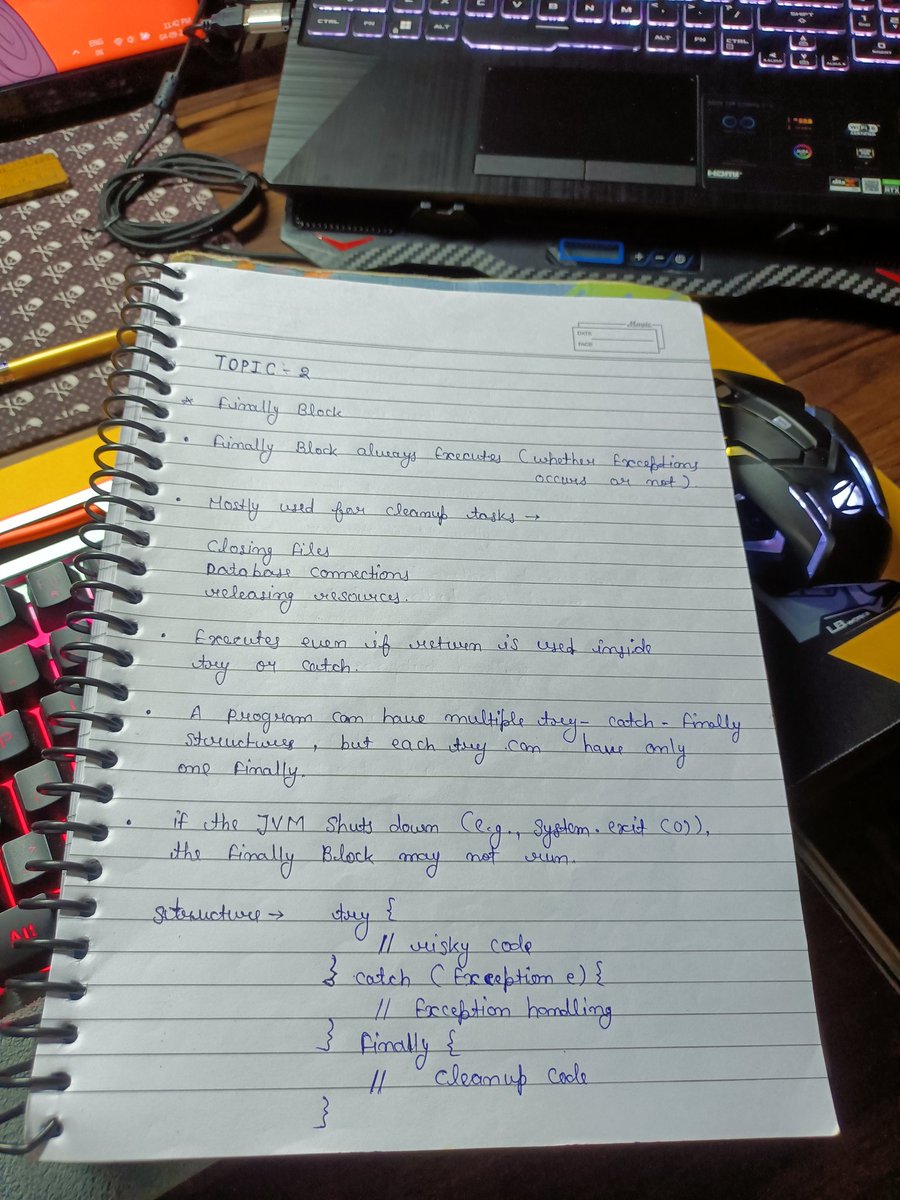 11:42 PM
ENG
CTRL
FN
ALT
Z
X
C
V
B
N
M
ALT
FN
CTRL
SHIFT
HDMI
WiFi 6
RTX
Magic
DATE
PAGE
TOPIC - 2
* Finally Block
• Finally Block always Executes (whether Exceptions
occurs or not)
• Mostly used for cleanup tasks →
Closing files
Database connections
releasing resources.
• Executes even if return is used inside
try or catch.
• A program can have multiple try- catch - finally
structures, but each try can have only
one finally.
• if the JVM Shuts down (e.g., System.exit (0)),
the finally Block may not run.
structure → try {
// risky code
} catch (Exception e) {
// Exception handling
} finally {
// cleanup code
}
Alt